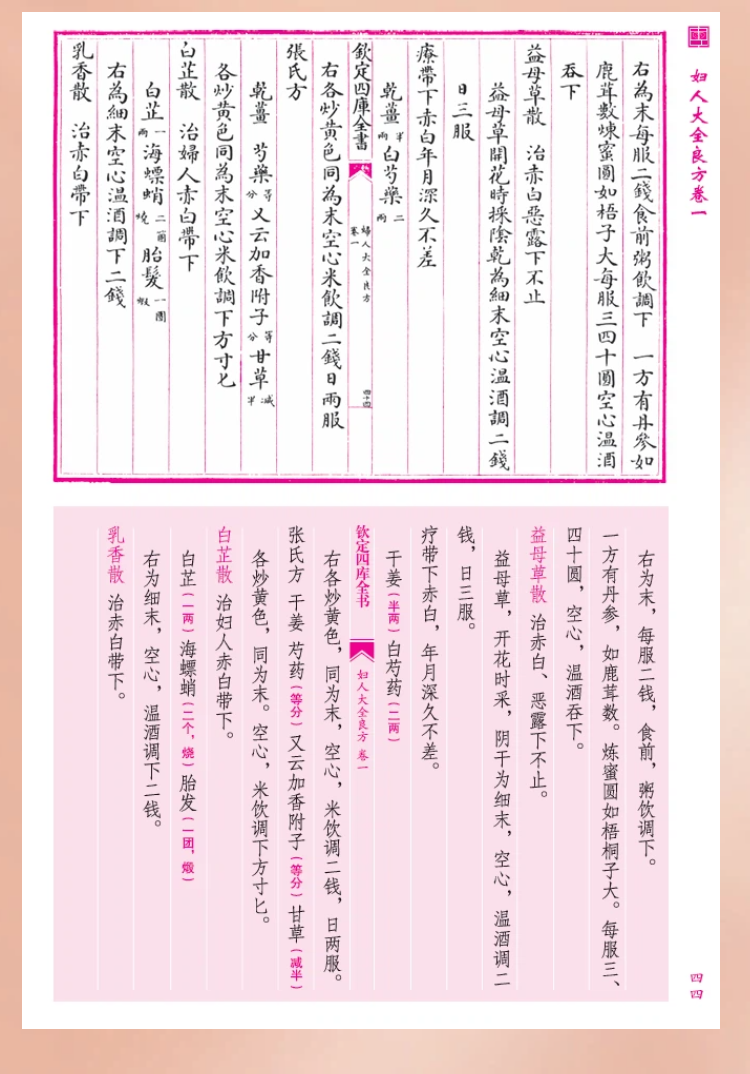 妇人大全良方卷一
右為末每服二錢食前粥飲調下　一方有丹參如
鹿茸數煉蜜圓如梧子大每服三四十圓空心温酒
吞下
益母草散　治赤白惡露下不止
益母草開花時採陰乾為細末空心温酒調二錢
日三服
療帶下赤白年月深久不差
乾薑半兩白芍藥二兩
欽定四庫全書　婦人大全良方卷一　四十四
右各炒黄色同為末空心米飲調二錢日兩服
張氏方
乾薑　芍藥等分又云加香附子等分甘草減半
各炒黄色同為末空心米飲調下方寸匕
白芷散　治婦人赤白帶下
白芷一兩海螵蛸二箇燒胎髮一團煅
右為細末空心温酒調下二錢
乳香散　治赤白帶下
右为末，每服二钱，食前，粥饮调下。
一方有丹参，如鹿茸数。炼蜜圆如梧桐子大。每服三、
四十圆，空心，温酒吞下。
益母草散　治赤白、恶露下不止。
益母草，开花时采，阴干为细末，空心，温酒调二
钱，日三服。
疗带下赤白，年月深久不差。
干姜(半两)白芍药(二两)
钦定四库全书　妇人大全良方　卷一
右各炒黄色，同为末，空心，米饮调二钱，日两服。
张氏方　干姜　芍药(等分)又云加香附子(等分)甘草(减半)
各炒黄色，同为末。空心，米饮调下方寸匕。
白芷散　治妇人赤白带下。
白芷(一两)海螵蛸(二个，烧)胎发(一团，煅)
右为细末，空心，温酒调下二钱。
乳香散　治赤白带下。
四四